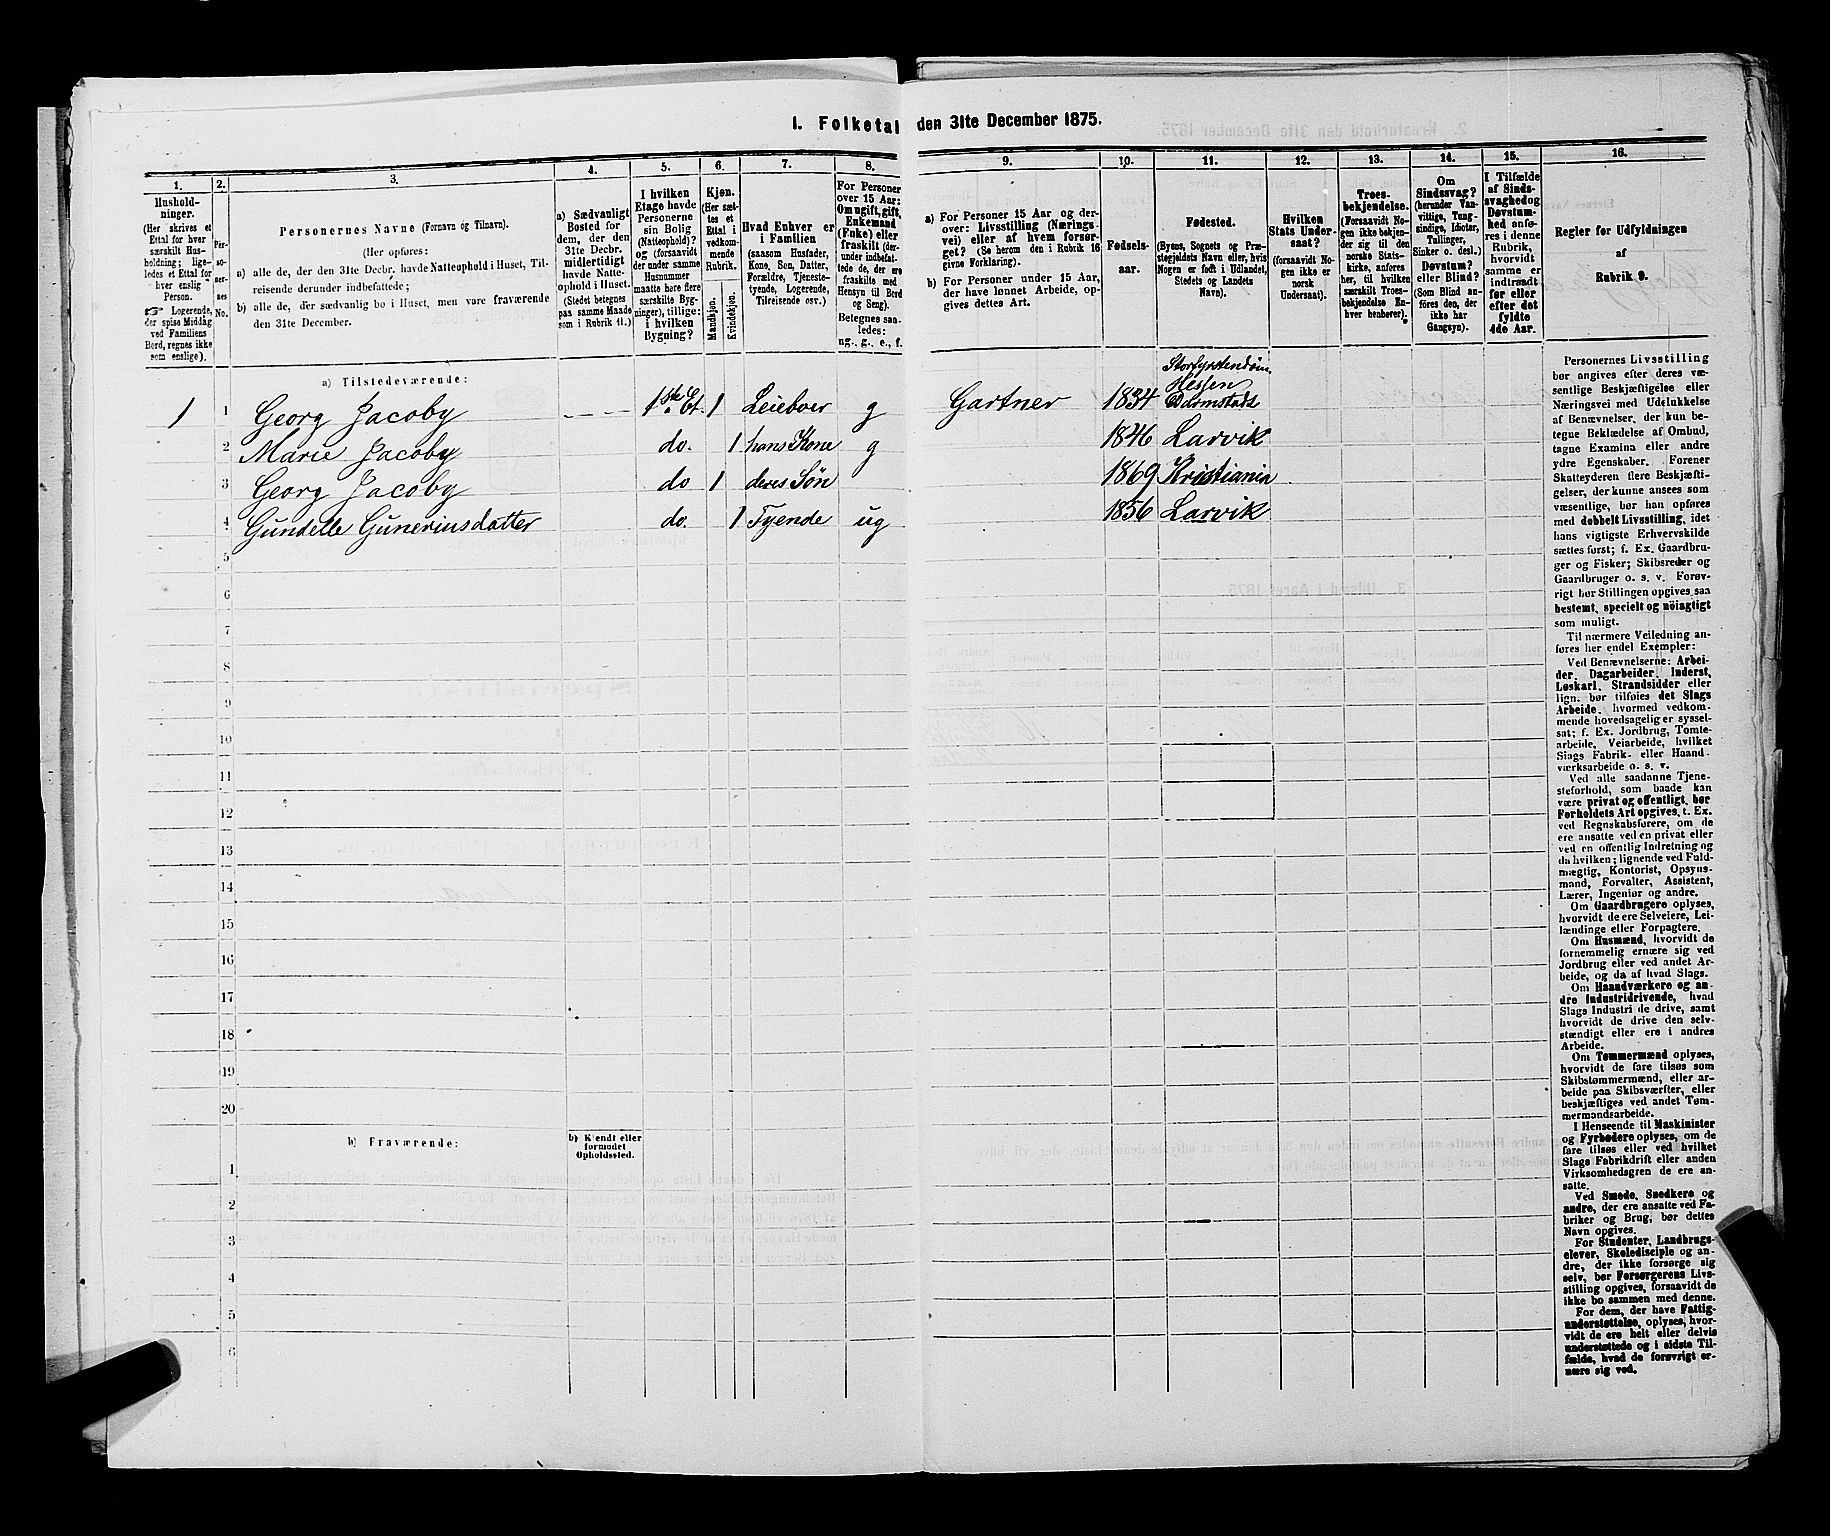 1. Folketal den 31te December 1875.
1.
2.
3.
4.
5.
6.
7.
8.
9.
10.
11.
12.
13.
14.
15.
16.
Hushold-
ninger.
(Her skrives et
Ettal for hver
særskilt Hus-
holdning; lige-
ledes et Ettal for
hver enslig
Person.
☞ Logerende,
der spise Middag
ved Familiens
Bord, regnes ikke
som enslige).
Per-
so-
ner-
nes
No.
Personernes Navne (Fornavn og Tilnavn).
(Her opføres:
a) alle de, der den 31te Decbr. havde Natteophold i Huset, Til-
reisende derunder indbefattede;
b) alle de, der sædvanlig bo i Huset, men vare fraværende
den 31te December.
a) Sædvanligt
Bosted for
dem, der den
31te Decbr.
midlertidigt
havde Natte-
ophold i Huset.
(Stedet betegnes
paa samme Maade
som i Rubrik 11.)
I hvilken
Etage havde
Personerne
sin Bolig
(Natteophold)?
og (forsaavidt
der under samme
Husnummer
maatte høre flere
særskilte Byg-
ninger), tillige:
i hvilken
Bygning?
Kjøn.
(Her sæt-
tes et
Ettal i
vedkom-
mende
Rubrik.
Mandkjøn.
Kvindekjøn.
Hvad Enhver er
i Familien
(saasom Husfader,
Kone, Søn, Datter,
Forældre, Tjeneste-
tyende, Logerende,
Tilreisende osv.)
For Personer
over 15 Aar:
Om ugift, gift,
Enkemand
(Enke) eller
fraskilt (der-
under indbefat-
tede de, der ere
fraskilte med
Hensyn til Bord
og Seng).
Betegnes saa-
ledes:
ug., g., e., f.
a) For Personer 15 Aar og der-
over: Livsstilling (Nærings-
vei) eller af hvem forsør-
get? (Se herom den i Rubrik 16
givne Forklaring).
b) For Personer under 15 Aar,
der have lønnet Arbeide, op-
gives dettes Art.
Fødsels-
aar.
Fødested.
(Byens, Sognets og Præ-
stegjeldets Navn eller, hvis
Nogen er født i Udlandet,
Stedets og Landets
Navn).
Hvilken
Stats Under-
saat?
(forsaavidt No-
gen ikke er
norsk
Undersaat).
Troes-
bekjendelse.
(Forsaavidt No-
gen ikke bekjen-
der sig til den
norske Stats-
kirke, anføres
her, til hvilken
særskilt Troes-
bekjendelse En-
hver benhører).
Om
Sindssvag?
(herunder Van-
vittige, Tung-
sindige, Idioter,
Tullinger,
Sinker o. desl.)
Døvstum?
eller Blind?
(Som Blind an-
føres den, der
ikke har
Gangsyn).
I Tilfælde
af Sinds-
svaghed og
Døvstum-
hed anfø-
res i denne
Rubrik,
hvorvidt
samme er
indtraadt
før eller
efter det
fyldte
4de Aar.
Regler for Udfyldningen
af
Rubrik 9.
a) Tilstedeværende:
1 1 Georg Jacoby — — — 1ste Et. 1 Leieboer g Gartner 1834 Storfyrstendøm. Hessen Darmstadt
2 Marie Jacoby do. 1 hans Kone g 1846 Larvik
3 Georg Jacoby do 1 deres Søn 1869 Kristiania
4 Gundelle Guneriusdatter do. 1 Tyende ug 1856 Larvik
5
6
7
8
9
10
11
12
13
14
15
16
17
18
19
20
b) Fraværende:
b) Kjendt eller
formodet
Opholdssted.
1
2
3
4
5
6
Personernes Livsstilling
bør angives efter deres væ-
sentlige Beskjæftigelse eller
Næringsvei med Udelukkelse
af Benævnelser, der kun be-
tegne Beklædelse af Ombud,
tagne Examina eller andre
ydre Egenskaber. Forener
Skatteyderen flere Beskjæfti-
gelser, der kunne ansees som
væsentlige, bør han opføres
med dobbelt Livsstilling, idet
hans vigtigste Erhvervskilde
sættes først; f. Ex. Gaardbru-
ger og Fisker; Skibsreder og
Gaardbruger o. s. v. Forøv-
rigt bør Stillingen opgives saa
bestemt, specielt og nöiagtigt
som muligt.
Til nærmere Veiledning an-
føres her endel Exempler:
Ved Benævnelserne: Arbei-
der, Dagarbeider, Inderst,
Løskarl, Strandsidder eller
lign. bør tilføies det Slags
Arbeide, hvormed vedkom-
mende hovedsagelig er syssel-
sat; f. Ex. Jordbrug, Tomte-
arbeide, Veiarbeide, hvilket
Slags Fabrik- eller Haand-
værksarbeide o. s. v.
Ved alle saadanne Tjene-
steforhold, som baade kan
være privat og offentligt, bør
Forholdets Art opgives, t. Ex.
ved Regnskabsførere, om de
ere ansatte ved en privat eller
ved en offentlig Indretning og
da hvilken; lignende ved Fuld-
mægtig, Kontorist, Opsyns-
mand, Forvalter, Assistent,
Lærer, Ingeniør og andre.
Om Gaardbrugere oplyses,
hvorvidt de ere Selveiere, Lei-
lændinge eller Forpagtere.
Om Husmænd, hvorvidt de
fornemmelig ernære sig ved
Jordbrug eller ved andet Ar-
beide, og da af hvad Slags.
Om Haandværkere og an-
dre Industridrivende, hvad
Slags Industri de drive, samt
hvorvidt de drive den selv-
stændigt eller ere i andres
Arbeide.
Om Tømmermænd oplyses,
hvorvidt de fare tilsøs som
Skibstømmermænd, eller ar-
beide paa Skibsværfter, eller
beskjæftiges ved andet Tøm-
mermandsarbeide.
I Henseende til Maskinister
og Fyrbødere oplyses, om de
fare tilsøs eller ved hvilket
Slags Fabrikdrift eller anden
Virksomhedsgren de ere an-
satte.
Ved Smede, Snedkere og
andre, der ere ansatte ved Fa-
briker og Brug, bør dettes
Navn opgives.
For Studenter, Landbrugs-
elever, Skoledisciple og an-
dre, der ikke forsørge sig
selv, bør Forsørgerens Livs-
stilling opgives, forsaavidt de
ikke bo sammen med denne.
For dem, der have Fattig-
understøttelse, oplyses, hvor-
vidt de ere helt eller delvis
understøttede og i sidste Til-
fælde, hvad de forøvrigt er-
nære sig ved.